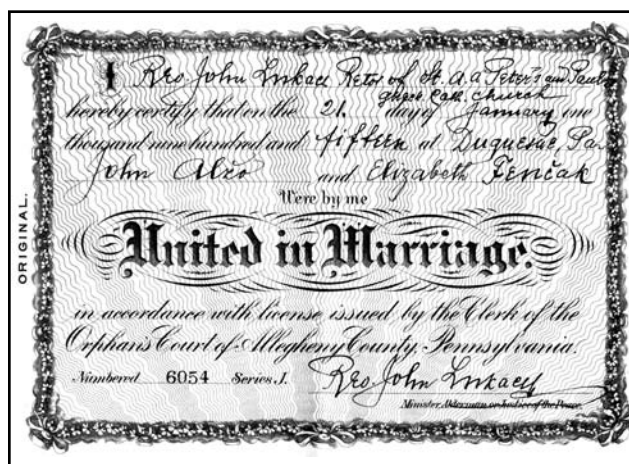 I Rev. John Lukacs Retor of St. a.a. Peter's and Paul's
greek Cath. church
hereby certify that on the 21. day of January one
thousand nine hundred and fifteen at Duquesne, Pa.
John Alžo and Elizabeth Fenčak
Were by me
United in Marriage.
in accordance with license issued by the Clerk of the
Orphans Court of Allegheny County, Pennsylvania.
Numbered 6054 Series J.
Rev. John Lukacs
Minister Alderman or Justice of the Peace.
ORIGINAL.